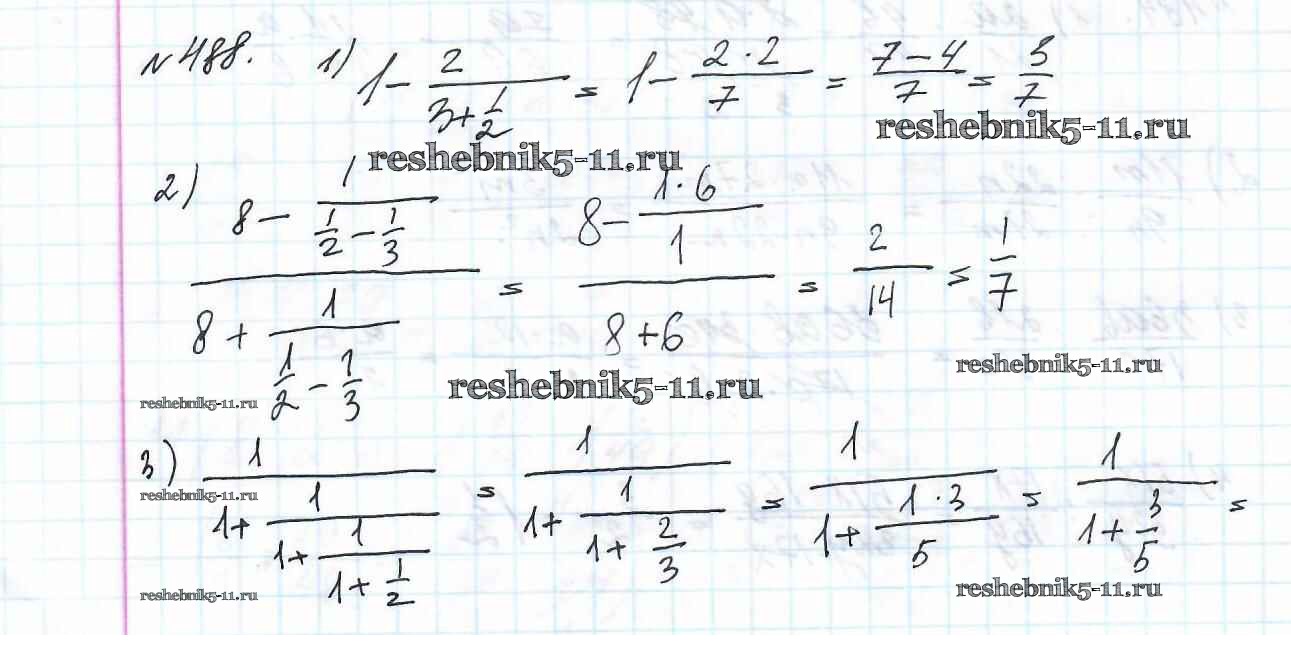 №488. 1) 1 - 2/(3 + 1/2) = 1 - (2·2)/7 = (7-4)/7 = 3/7
reshebnik5-11.ru
reshebnik5-11.ru
2) (8 - 1/(1/2 - 1/3))/(8 + 1/(1/2 - 1/3)) = (8 - (1·6)/1)/(8+6) = 2/14 = 1/7
reshebnik5-11.ru
reshebnik5-11.ru
reshebnik5-11.ru
3) 1/(1 + 1/(1 + 1/(1 + 1/2))) = 1/(1 + 1/(1 + 2/3)) = 1/(1 + (1·3)/5) = 1/(1 + 3/5) =
reshebnik5-11.ru
reshebnik5-11.ru
reshebnik5-11.ru